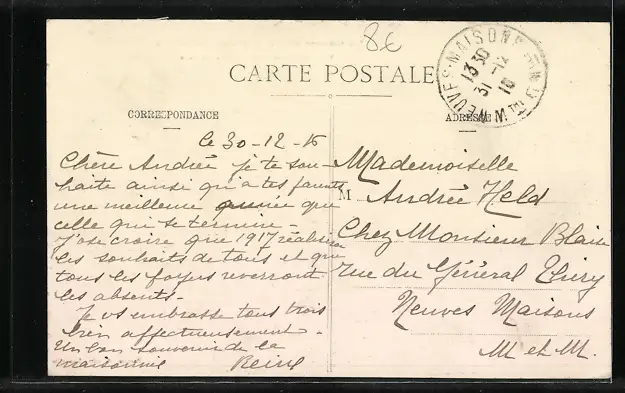 8€
CARTE POSTALE
NEUVES-MAISONS
13 30
31 - 12
16
CORRESPONDANCE
ADRESSE
le 30-12-16
Chère Andrée je te sou-
haite ainsi qu'à tes parents
une meilleure année que
celle qui se termine -
J'ose croire que 1917 réalisera
les souhaits de tous et que
tous les foyers reverront
les absents -
Je vs embrasse tous trois
bien affectueusement -
Un bon souvenir de la
maisonnée Reine
Mademoiselle
M Andrée Held
Chez Monsieur Blaise
rue du Général Thiry
Neuves Maisons
M et M.